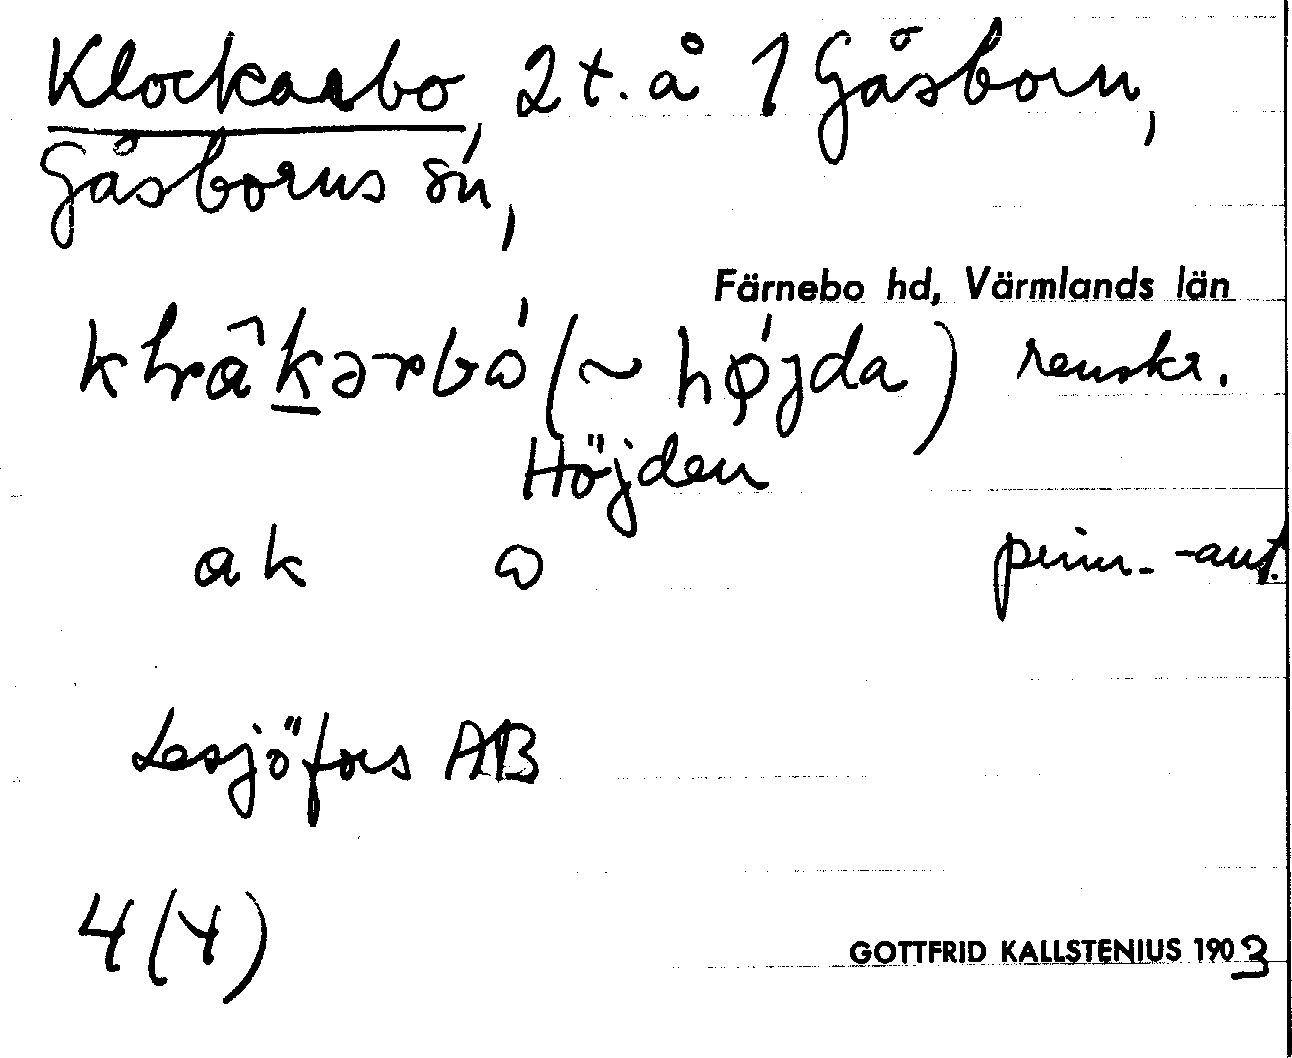 Klockarbo, 2 t. å 1 Gåsborn,
Gåsborns sn,
Färnebo hd, Värmlands län
(~ højda) renskr.
Höjden
ak o
prim. -ant.
Lesjöfors AB
4(4)
GOTTFRID KALLSTENIUS 1903